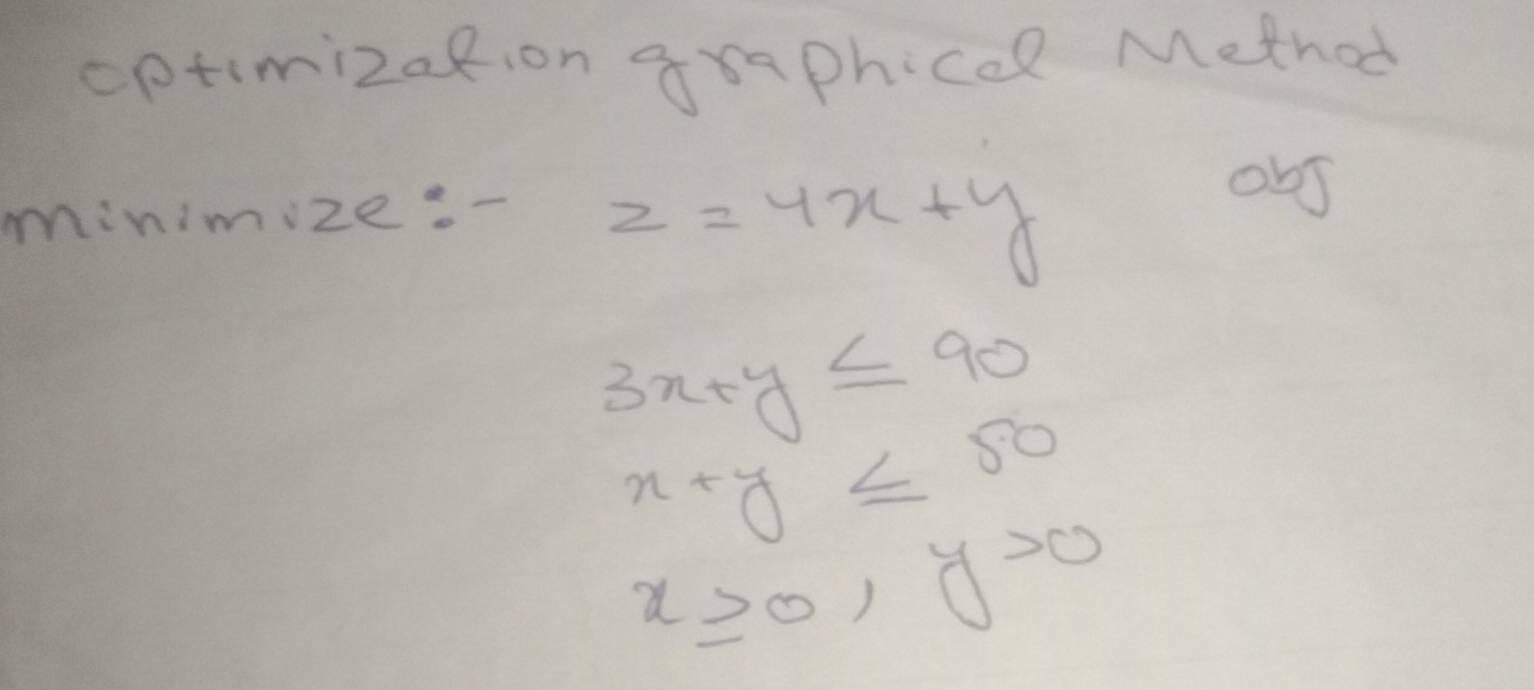 optimization graphical Method
minimize:- z = 4x + y obj
3x+y ≤ 90
x+y ≤ 50
x ≥ 0, y > 0